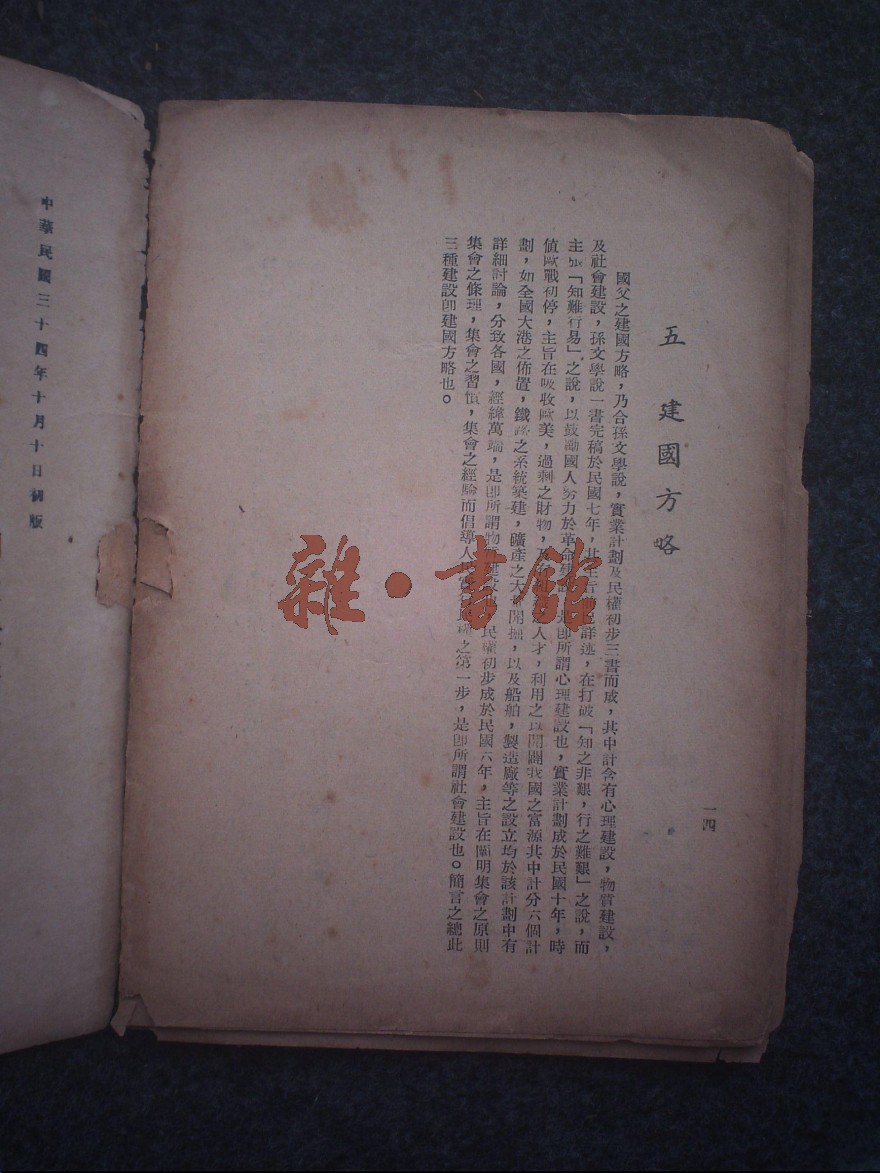 五 建國方略
國父之建國方略，乃合孫文學說，實業計劃及民權初步三書而成，其中計含有心理建設，物質建設，
及社會建設，孫文學說一書完稿於民國七年，其主旨詳述，在打破「知之非艱，行之難艱」之說，而
主張「知難行易」之說，以鼓勵國人努力於革命建設，是即所謂心理建設也，實業計劃成於民國十年，時
值歐戰初停，主旨在吸收歐美，過剩之財物，及人才，利用之以開闢我國之富源其中計分六個計
劃，如全國大港之佈置，鐵路之系統築建，礦產之大開掘，以及船舶，製造廠等之設立均於該計劃中有
詳細討論，分致各國，經緯萬端，是即所謂物質建設也民權初步成於民國六年，主旨在闡明集會之原則
集會之條理，集會之習慣，集會之經驗而倡導人民權之第一步，是即所謂社會建設也。簡言之總此
三種建設即建國方略也。
一四
中華民國三十四年十月十日初版
雜·書館